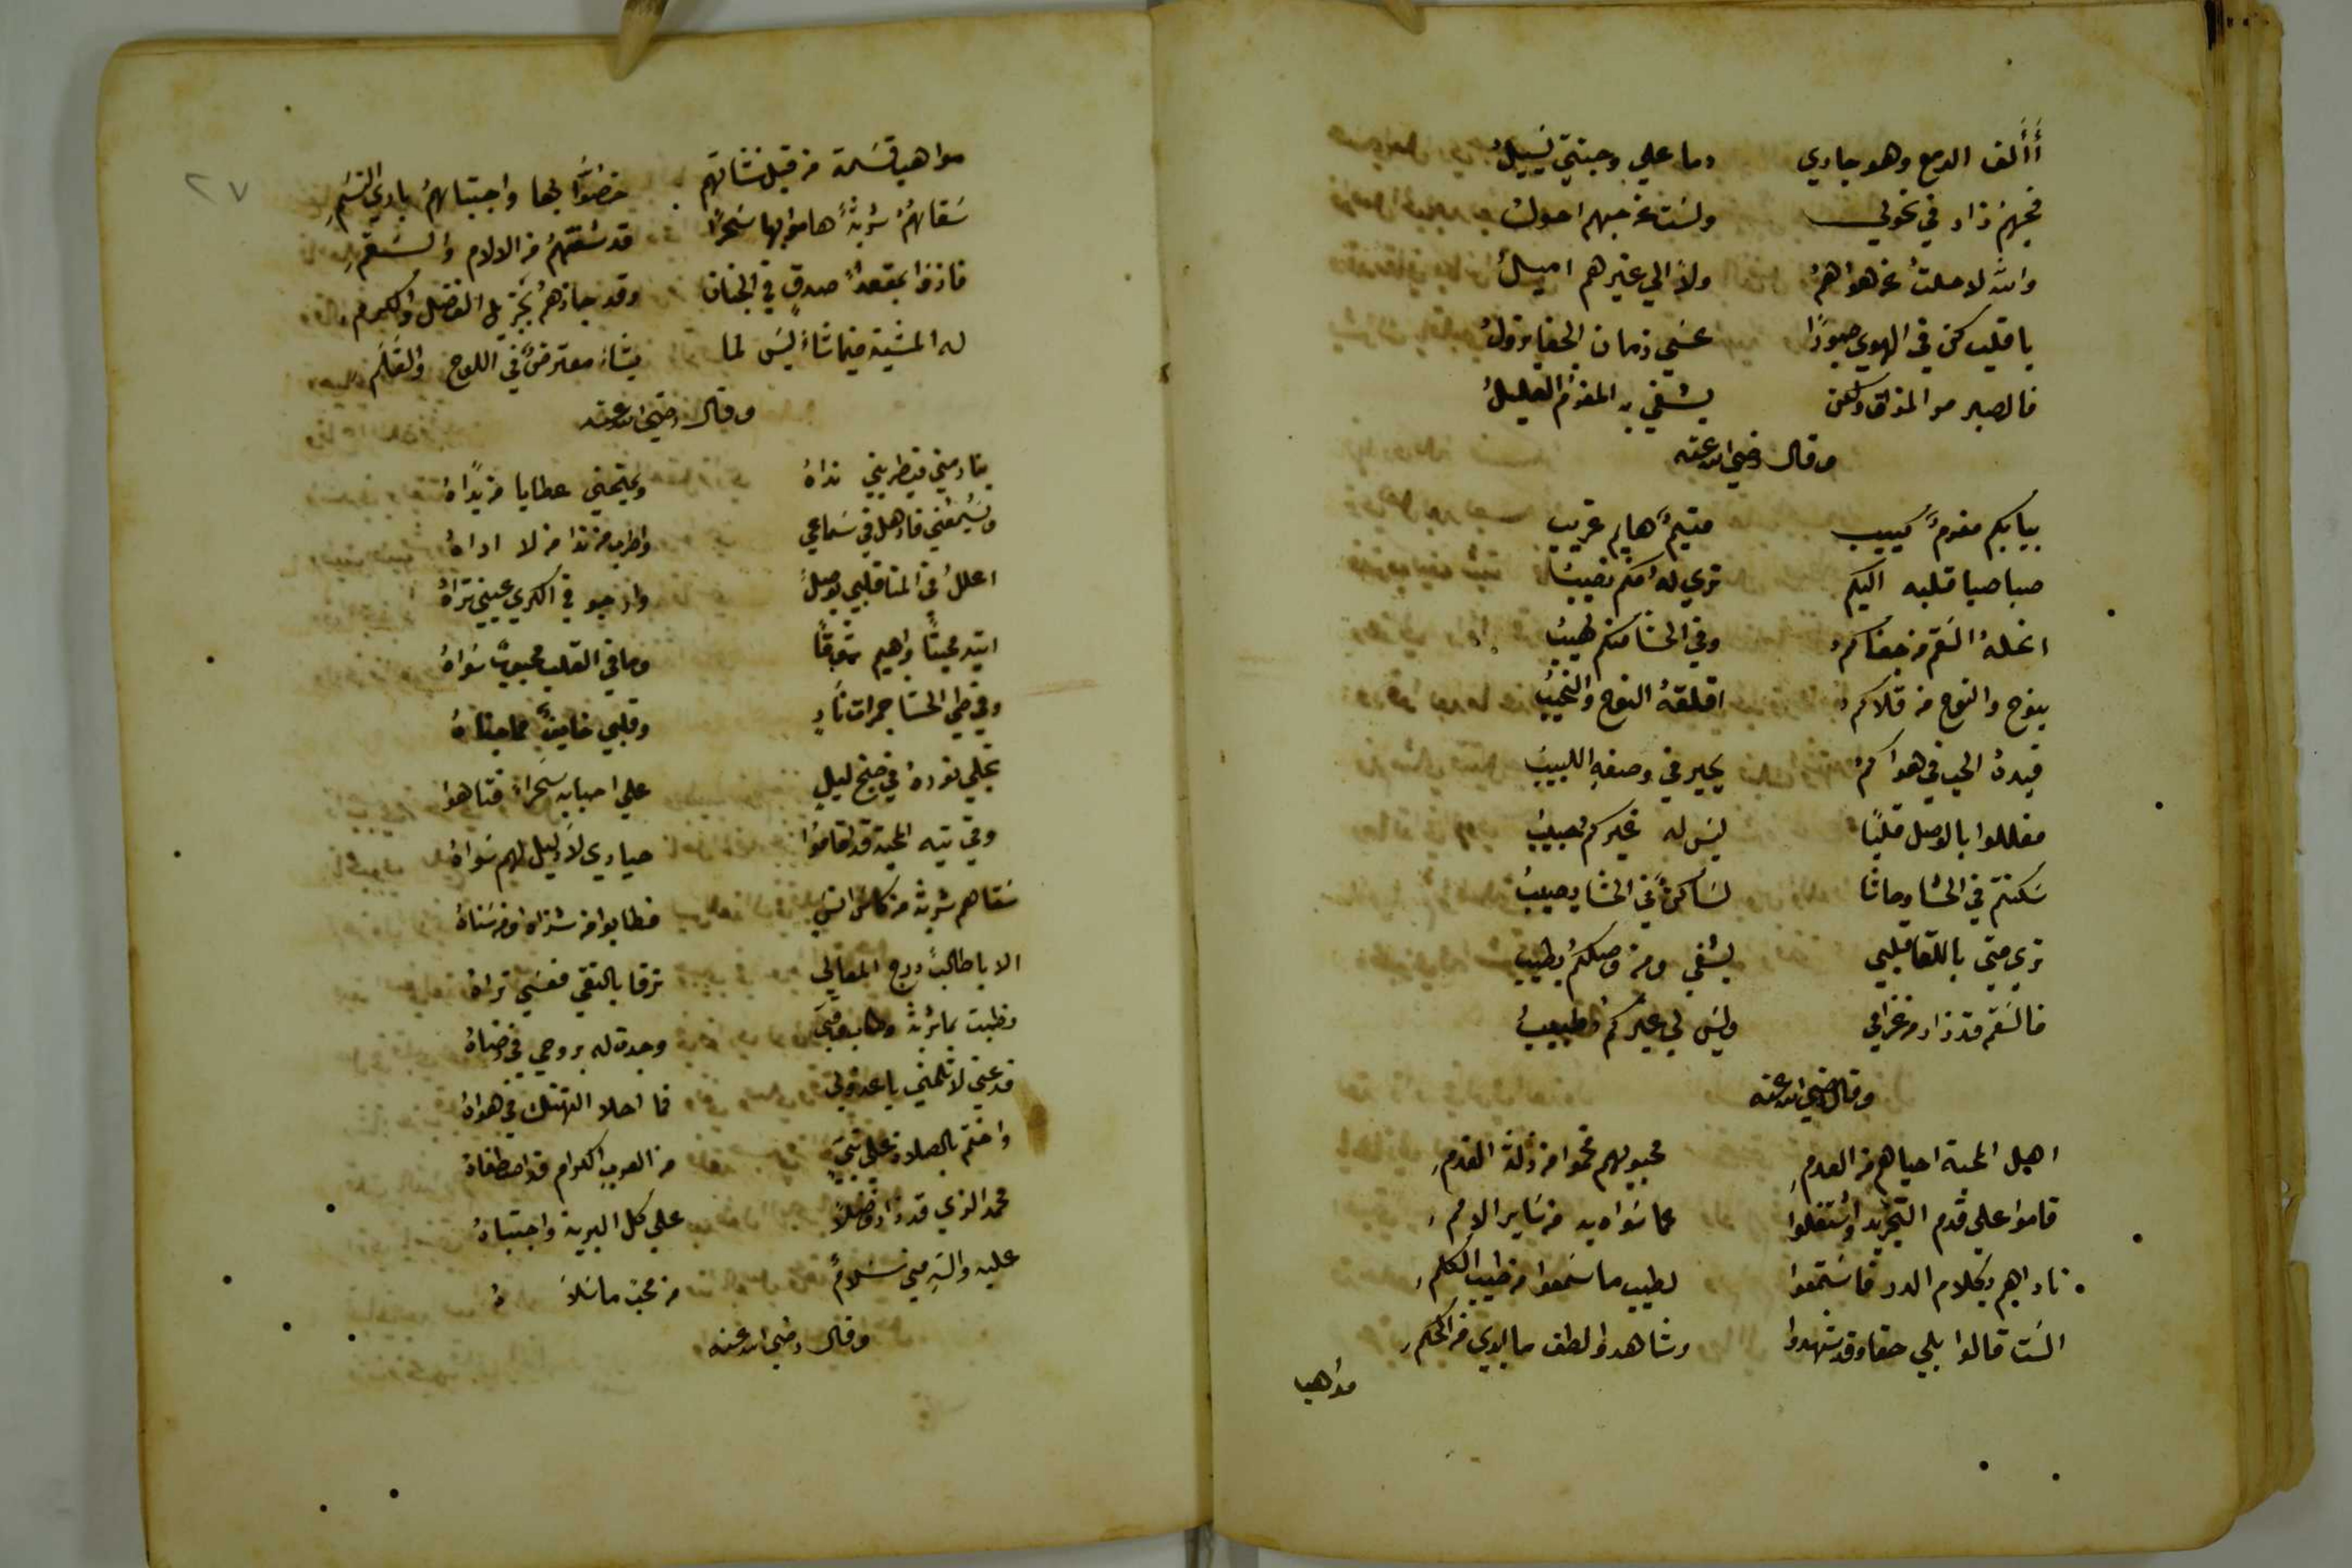 أألف الدمع وهو جاري دما علي وجنتي يسيل
فحبهم زاد في نحولي ولست عن حبهم احول
والله لا حلت عن هواهم ولا الي غيرهم اميل
يا قلب كن في الهوي صبورا عسي زمان الجفا يزول
فالصبر مر المذاق ولكن يشفي به المغرم العليل
وقال رضي الله عنه
ببابكم مغرم كييب متيم هايم غريب
صبا صبا قلبه اليكم تري له منكم نصيب
انحله السقم من جفاكم وفي الحشا منكم لهيب
ينوح والنوح من قلاكم اقلقه النوح والنحيب
قيده الحب في هواكم يحير في وصفه اللبيب
فعللوا بالوصل قلبا ليس له غيركم حبيب
سكنتم في الحشا وحاشا لساكن في الحشا يصيب
تري متي باللقا قلبي يشفي ومن وصلكم يطيب
فالسقم قد زاد من غرامي وليس لي غيركم طبيب
وقال رضي الله عنه
اهل المحبة احياهم من العدم محبوبهم فمحوا من زلة القدم
قاموا علي قدم التجريد واشتغلوا عما سواه به من ساير الامم
ناداهم بكلام الدر فاستمعوا لطيب ما سمعوا من طيب الكلم
الست قالوا بلي حقا وقد شهدوا وشاهدوا لطف ما يبدي من الحكم
مواهبا
٢٧
مواهبا قسمة من قبل نشاتهم خصوا بها واجتباهم باري النسم
سقاهم شربة هاموا بها سحرا قد شفتهم من الالام والسقم
فازوا بمقعد صدق في الجنان وقد جازهم بجزيل الفضل والكرم
له المشية فيما شاء ليس لما يشاء معترض في اللوح والقلم
وقال رضي الله عنه
ينادمني فيطربني نداه ويمنحني عطايا من يداه
ويسمعني فاذهل في سماعي واطرب من ندا من لا اراه
اعلل في المنا قلبي بوصل وارجو في الكري عيني تراه
اتيه محبتا واهيم شوقا وما في القلب محبوب سواه
وفي طي الحشا جمرات نار وقلبي خايف مما جناه
تجلي نوره في جنح ليل علي احبابه سحرا فتاهوا
وفي تيه المحبة قد اقاموا حياري لا دليل لهم سواه
سقاهم شربة من كاس انس فطابوا من شذاه ومن سناه
الا يا طالب درج المعالي ترقا بالتقي فعسي تراه
وطبت بما شربت وطاب وقتي وجدت له بروحي في رضاه
فدعني لا تلمني يا عذولي فما احلا التهتك في هواه
واختم بالصلاة علي نبي من العرب الكرام قد اصطفاه
محمد الذي قد زاد فضلا علي كل البرية واجتباه
عليه والتبر مني سلام من محب ما سلاه
وقال رضي الله عنه